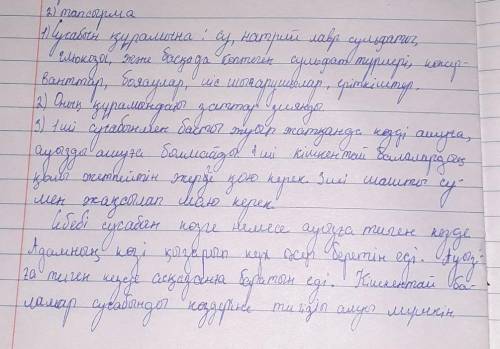 2) тапсырма
1) Сусабын құрамына : су, натрий лавр сульфаты,
глюкозы, және басқада көптеген сульфат түрлері, консер-
ванттар, бояулар, иіс шығарушылар, еріткіштер.
2) Оның құрамындағы заттар зиянды
3) 1ші сусабынмен басты жуып жатқанда көзді ашуға,
ауызды ашуға болмайды 2ші кішкентай балалардың
қолы жетпейтін жерге қою керек. 3ші шашты су-
мен жақсылап шаю керек.
Себебі сусабан көзге немесе ауызға тиген кезде
Адамның көзі қызарып кері әсер беретін еді. Ауызі-
га тиген кезде асқазанға баратын еді. Кішкентай ба-
лалар сусабынды көздеріне тигізіп алуы мүмкін.